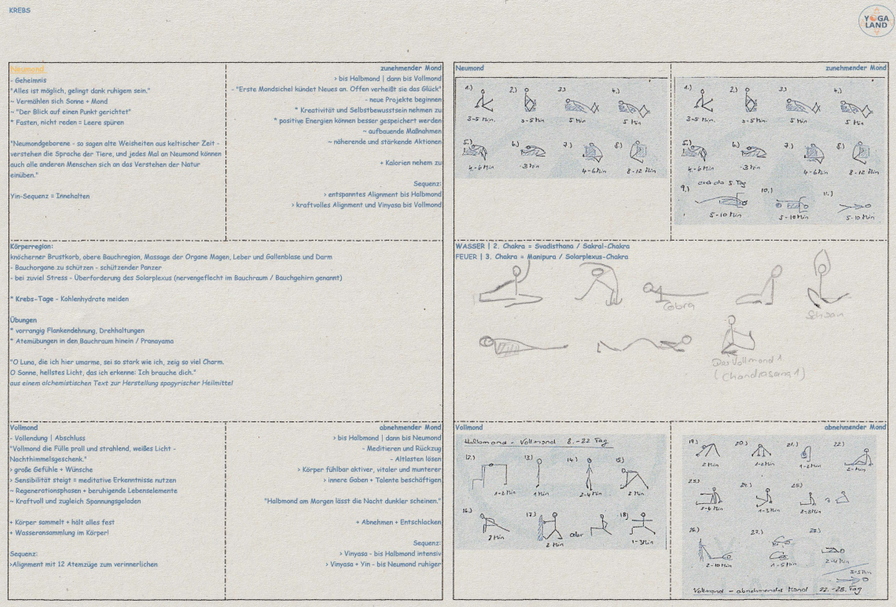 KREBS
YOGA
LAND
Neumond
- Geheimnis
"Alles ist möglich, gelingt dank ruhigem sein."
~ Vermählen sich Sonne + Mond
~ "Der Blick auf einen Punkt gerichtet"
* Fasten, nicht reden = Leere spüren
"Neumondgeborene - so sagen alte Weisheiten aus keltischer Zeit -
verstehen die Sprache der Tiere, und jedes Mal an Neumond können
auch alle anderen Menschen sich an das Verstehen der Natur
einüben."
Yin-Sequenz = Innehalten
zunehmender Mond
> bis Halbmond | dann bis Vollmond
- "Erste Mondsichel kündet Neues an. Offen verheißt sie das Glück"
- neue Projekte beginnen
* Kreativität und Selbstbewusstsein nehmen zu
* positive Energien können besser gespeichert werden
~ aufbauende Maßnahmen
~ nährende und stärkende Aktionen
+ Kalorien nehmen zu
Sequenz:
> entspanntes Alignment bis Halbmond
> kraftvolles Alignment und Vinyasa bis Vollmond
Körperregion:
knöcherner Brustkorb, obere Bauchregion, Massage der Organe Magen, Leber und Gallenblase und Darm
- Bauchorgane zu schützen - schützender Panzer
- bei zuviel Stress - Überforderung des Solarplexus (nervengeflecht im Bauchraum / Bauchgehirn genannt)
* Krebs-Tage - Kohlenhydrate meiden
Übungen
* vorrangig Flankendehnung, Drehhaltungen
* Atemübungen in den Bauchraum hinein / Pranayama
"O Luna, die ich hier umarme, sei so stark wie ich, zeig so viel Charm.
O Sonne, hellstes Licht, das ich erkenne: Ich brauche dich."
aus einem alchemistischen Text zur Herstellung spagyrischer Heilmittel
Vollmond
- Vollendung | Abschluss
"Vollmond die Fülle prall und strahlend, weißes Licht -
Nachthimmelsgeschenk."
> große Gefühle + Wünsche
> Sensibilität steigt = meditative Erkenntnisse nutzen
~ Regenerationsphasen + beruhigende Lebenselemente
~ Kraftvoll und zugleich Spannungsgeladen
+ Körper sammelt + hält alles fest
+ Wasseransammlung im Körper!
Sequenz:
>Alignment mit 12 Atemzüge zum verinnerlichen
abnehmender Mond
> bis Halbmond | dann bis Neumond
- Meditieren und Rückzug
- Altlasten lösen
> Körper fühlbar aktiver, vitaler und munterer
> innere Gaben + Talente beschäftigen
"Halbmond am Morgen lässt die Nacht dunkler scheinen."
+ Abnehmen + Entschlacken
Sequenz:
> Vinyasa - bis Halbmond intensiv
> Vinyasa + Yin - bis Neumond ruhiger
Neumond
1.) 2.) 3.) 4.)
3-5 Min. 3-5 Min 5 Min. 5 Min
5.) 6.) 7.) 8.)
4-6 Min ·3 Min 4-6 Min 8-12 Min
zunehmender Mond
1.) 2.) 3.) 4.)
3-5 Min. 3-5 Min 5 Min. 5 Min
5.) 6.) 7.) 8.)
4-6 Min ·3 Min 4-6 Min 8-12 Min
9.) 5 Tag 10.) 11.)
5-10 Min 5-10 Min 5-10 Min
WASSER | 2. Chakra = Svadisthana / Sakral-Chakra
FEUER | 3. Chakra = Manipura / Solarplexus-Chakra
Cobra
Vollmond 1
(Chandrasana 1)
Vollmond
Halbmond - Vollmond 8.-22 Tag
12.) 13.) 14.) 15.)
16.) 17.) oder 18.)
2 Min 2 Min 1-3 Min
abnehmender Mond
19.) 20.) 21.) 22.)
2 Min 2 Min
23.) 24.) 25.)
26.) 27.) 28.)
2-10 Min 1-5 Min 2-4 Min
Vollmond - abnehmende Mond 22.-28. Tag